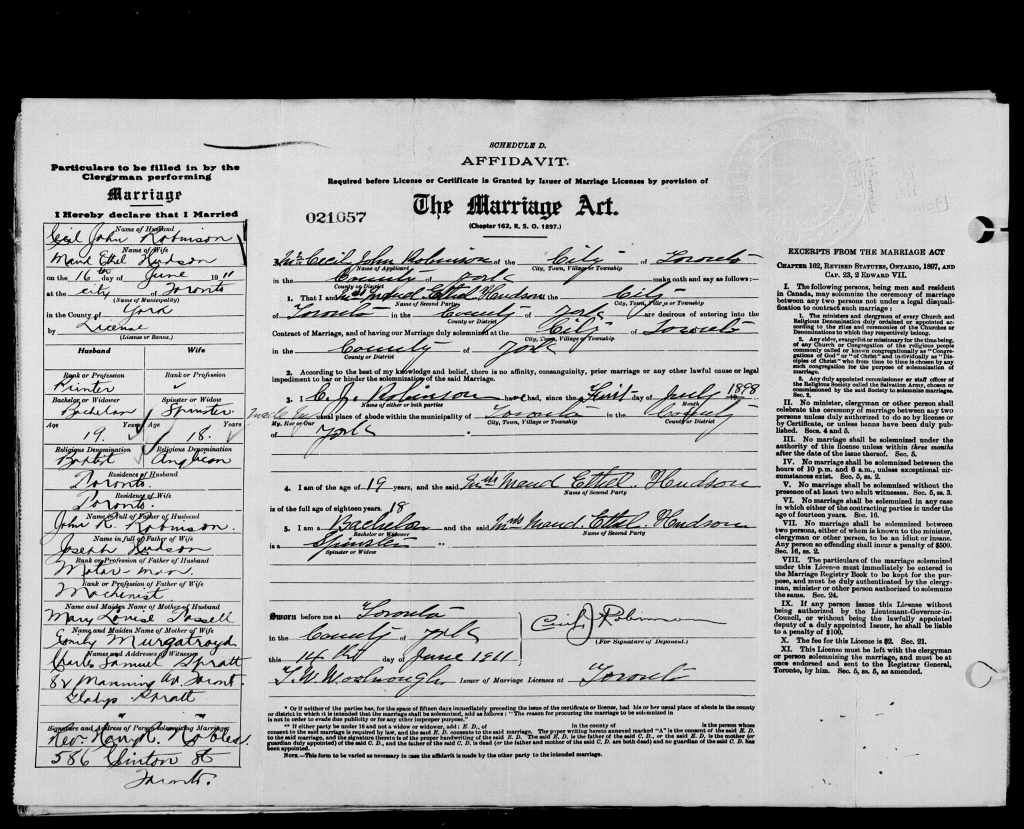 Particulars to be filled in by the
Clergyman performing
Marriage
I Hereby declare that I Married
Name of Husband
Cecil John Robinson
Name of Wife
Maud Ethel Hudson
on the 16th day of June 1911
at the city of Toronto
(Name of Municipality)
in the County of York
by License
(License or Banns.)
Husband Wife
Rank or Profession Rank or Profession
Printer ✓
Bachelor or Widower Spinster or Widow
Bachelor Spinster
Age Years Age Years
19. 18.
Religious Denomination Religious Denomination
Baptist Anglican
Residence of Husband
Toronto.
Residence of Wife
Toronto.
Name in full of Father of Husband
John R. Robinson.
Name in full of Father of Wife
Joseph Hudson
Rank or Profession of Father of Husband
Motor-man
Rank or Profession of Father of Wife
Machinist
Name and Maiden Name of Mother of Husband
Mary Louise
Name and Maiden Name of Mother of Wife
Emily Murgatroyd
Names and Addresses of Witnesses
Charles Samuel Spratt
82 Manning Av. Toront.
Gladys Spratt
" "
Signature and Address of Person Solemnizing Marriage
Rev.
586 Clinton St
Toronto.
SCHEDULE D.
AFFIDAVIT.
Required before License or Certificate is Granted by Issuer of Marriage Licenses by provision of
021057
The Marriage Act.
(Chapter 162, R. S. O. 1897.)
Cecil John Robinson of the City of Toronto
Name of Applicant City, Town, Village or Township
in the County of York make oath and say as follows:-
County or District
1. That I and Maud Ethel Hudson the City
Name of Second Party City, Town, Village or Township
of Toronto in the County of York are desirous of entering into the
Contract of Marriage, and of having our Marriage duly solemnized at the City of Toronto
City, Town, Village or Township
in the County of York
County or District
2. According to the best of my knowledge and belief, there is no affinity, consanguinity, prior marriage or any other lawful cause or legal
impediment to bar or hinder the solemnization of the said Marriage.
3. I C. J. Robinson have had, since the First day of July 1898
Name of either or both parties Month
usual place of abode within the municipality of Toronto in the County
My, Her or Our City, Town, Village or Township County or District
of York
4. I am of the age of 19 years, and the said Maud Ethel. Hudson
Name of Second Party
is of the full age of eighteen years. 18
5. I am a Bachelor and the said Maud. Ethel. Hudson
Bachelor or Widower Name of Second Party
is a Spinster
Spinster or Widow
Sworn before me at Toronto
in the County of York
Cecil J Robinson
(For Signature of Deponent.)
this 14th day of June 1911
Issuer of Marriage Licenses at Toronto
* Or if neither of the parties has, for the space of fifteen days immediately preceding the issue of the certificate or license, had his or her usual place of abode in the county
or district in which it is intended that the marriage shall be solemnized, add as follows: "The reason for procuring the marriage to be solemnized in
is not in order to evade due publicity or for any other improper purpose."
** If either party be under 18 and not a widow or widower, add: E. D., of in the county of is the person whose
consent to the said marriage is required by law, and the said E. D. consents to the said marriage. The paper writing hereto annexed marked "A" is the consent of the said E. D.
to the said marriage, and the signature thereto is of the proper handwriting of the said E. D. The said E. D. is the father of the said C. D., or the said E. D. is the mother (or
guardian duly appointed) of the said C. D., and the father of the said C. D. is dead (or the father and mother of the said C. D. are both dead) and no guardian of the said C. D. has
been appointed.
NOTE.—This form to be varied as necessary in case the affidavit is made by the other party to the intended marriage.
EXCERPTS FROM THE MARRIAGE ACT
CHAPTER 162, REVISED STATUTES, ONTARIO, 1897, AND
CAP. 23, 2 EDWARD VII.
I. The following persons, being men and resident
in Canada, may solemnize the ceremony of marriage
between any two persons not under a legal disqualifi-
cation to contract such marriage:
1. The ministers and clergymen of every Church and
Religious Denomination duly ordained or appointed ac-
cording to the rites and ceremonies of the Churches or
Denominations to which they respectively belong.
2. Any elder, evangelist or missionary for the time being,
of any Church or Congregation of the religious people
commonly called or known congregationally as "Congre-
gations of God" or "of Christ" and individually as "Dis-
ciples of Christ" who from time to time is chosen by any
such congregation for the purpose of solemnization of
marriage.
3. Any duly appointed commissioner or staff officer of
the Religious Society called the Salvation Army, chosen or
commissioned by the said Society to solemnize marriages.
Sec. 2.
II. No minister, clergyman or other person shall
celebrate the ceremony of marriage between any two
persons unless duly authorized to do so by license or
by Certificate, or unless banns have been duly pub-
lished. Secs. 4 and 5.
III. No marriage shall be solemnized under the
authority of this license unless within three months
after the date of the issue thereof. Sec. 5.
IV. No marriage shall be solemnized between the
hours of 10 p.m. and 6 a.m., unless exceptional cir-
cumstances exist. Sec. 5, ss. 2.
V. No marriage shall be solemnized without the
presence of at least two adult witnesses. Sec. 5, ss. 3.
VI. No marriage shall be solemnized in any case
in which either of the contracting parties is under the
age of fourteen years. Sec. 16.
VII. No marriage shall be solemnized between
two persons, either of whom is known to the minister,
clergyman or other person, to be an idiot or insane.
Any person so offending shall incur a penalty of $500.
Sec. 16, ss. 2.
VIII. The particulars of the marriage solemnized
under this License must immediately be entered in
the Marriage Registry Book to be kept for the pur-
pose, and must be duly authenticated by the clergy-
man, minister or other person authorized to solemnize
the same. Sec. 24.
IX. If any person issues this License without
being authorized by the Lieutenant-Governor-in-
Council, or without being the lawfully appointed
deputy of a duly appointed Issuer, he shall be liable
to a penalty of $100.
X. The fee for this License is $2. Sec. 21.
XI. This License must be left with the clergyman
or person solemnizing the marriage, and must be at
once endorsed and sent to the Registrar General,
Toronto, by him. Sec. 5, ss. 5, as amended.